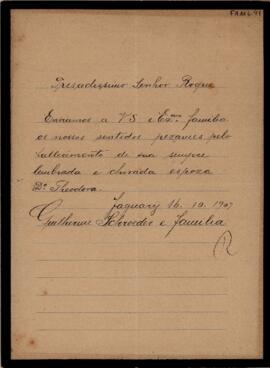 FAML 91
Presadissimo Senhor Roque
Enviamos a VS e Exma familia
os nossos sentidos pezames pelo
fallecimento de sua sempre
lembrada e chorada espoza
Da Theodora.
Jaguary 16. 10. 1907
Guilherme Schroeder e Familia
R